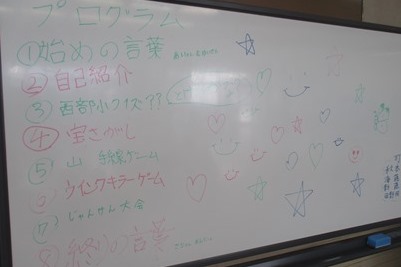 プログラム
①始めの言葉
②自己紹介
③西部小クイズ??
④宝さがし
⑤山手線ゲーム
⑥ウインクキラーゲーム
⑦じゃんけん大会
⑧終りの言葉